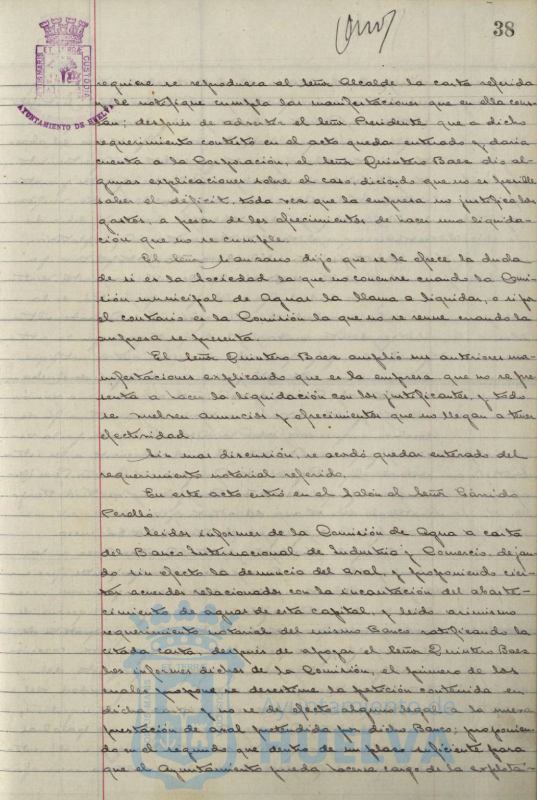 38
PORTUS MARIS ET TERRAE CUSTODIA
AYUNTAMIENTO DE HUELVA
requiere se reproduzca al señor Alcalde la carta referida
y le notifique cumpla las manifestaciones que en ella cons-
tan; después de advertir el señor Presidente que a dicho
requerimiento contestó en el acto quedar enterado y daría
cuenta a la Corporación, el señor Quintero Baez dio al-
gunas explicaciones sobre el caso, diciendo que no es posible
saber el déficit, toda vez que la empresa no justifica los
gastos, a pesar de los ofrecimientos de hacer una liquida-
ción que no se cumple.
El señor Manzano dijo que se le ofrece la duda
de si es la Sociedad la que no concurre cuando la Comi-
sión municipal de Aguas la llama a liquidar, o si por
el contrario es la Comisión la que no se reune cuando la
empresa se presenta.
El señor Quintero Baez amplió sus anteriores ma-
nifestaciones explicando que es la empresa que no se pre-
senta a hacer la liquidación con los justificantes, y todo
se vuelven anuncios y ofrecimientos que no llegan a tener
efectividad.
Sin mas discusión, se acordó quedar enterado del
requerimiento notarial referido.
En este acto entró en el Salón el señor Garrido
Perelló.
Leidos informes de la Comisión de Agua a carta
del Banco Internacional de Industria y Comercio, dejan-
do sin efecto la denuncia del aval, y proponiendo cier-
tos acuerdos relacionados con la incautación del abaste-
cimiento de aguas de esta capital, y leido asimismo
requerimiento notarial del mismo Banco ratificando la
citada carta, después de apoyar el señor Quintero Baez
los informes dichos de la Comisión, el primero de los
cuales propone se desestime la petición contenida en
dicha carta y no se de efecto alguno legal a la nueva
prestación de aval pretendida por dicho Banco; proponien-
do en el segundo que dentro de un plazo suficiente para
que el Ayuntamiento pueda hacerse cargo de la explota-
Ayuntamiento de
HUELVA